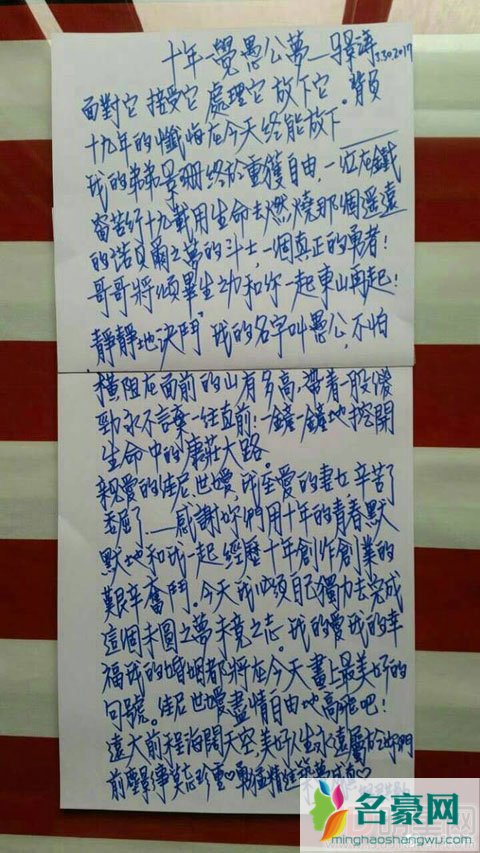 十年一覺愚公夢—馬景濤 3.30.2017
面對它 接受它 處理它 放下它。背負
十九年的懺悔在今天終能放下
我的弟弟景珊終於重獲自由,一位在鐵
窗苦行十九載用生命去燃燒那個遙遠
的諾貝爾之夢的斗士,一個真正的勇者!
哥哥將傾畢生之力和你一起東山再起!
靜靜地決鬥"我的名字叫愚公,不怕
橫阻在面前的山有多高,帶著一股傻
勁永不言棄一往直前!一鏟一鏟地挖開
生命中的康莊大路。
親愛的佳尼、世嬡,我至愛的妻女辛苦了
委屈了——感謝妳們用十年的青春默
默地和我一起經歷十年創作創業的
艱辛奮鬥。今天我必須自己獨力去完成
這個未圓之夢未竟之志。我的愛我的幸
福我的婚姻都將在今天畫上最美好的
句號。佳尼世嬡盡情自由地高飛吧!
遠大前程海闊天空美好人生永遠屬於妳們
前塵影事莫忘珍重♡勇猛精進
名豪网
minghaoshangwu.com